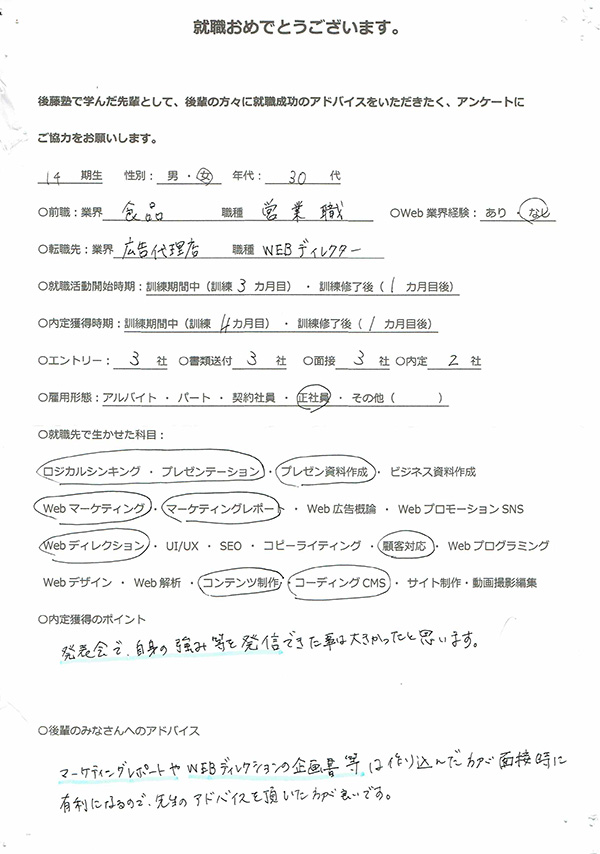 就職おめでとうございます。
後藤塾で学んだ先輩として、後輩の方々に就職成功のアドバイスをいただきたく、アンケートに
ご協力をお願いします。
14 期生 性別: 男 ・ 女 年代: 30 代
○前職:業界 食品 職種 営業職 ○Web 業界経験: あり ・ なし
○転職先:業界 広告代理店 職種 WEBディレクター
○就職活動開始時期:訓練期間中(訓練 3 カ月目) ・ 訓練修了後( 1 カ月目後)
○内定獲得時期:訓練期間中(訓練 4カ月目) ・ 訓練修了後( 1 カ月目後)
○エントリー: 3 社 ○書類送付 3 社 ○面接 3 社 ○内定 2 社
○雇用形態:アルバイト ・ パート ・ 契約社員 ・ 正社員 ・ その他( )
○就職先で生かせた科目:
ロジカルシンキング ・ プレゼンテーション ・ プレゼン資料作成 ・ ビジネス資料作成
Web マーケティング ・ マーケティングレポート ・ Web 広告概論 ・ Web プロモーション SNS
Web ディレクション ・ UI/UX ・ SEO ・ コピーライティング ・ 顧客対応 ・ Web プログラミング
Web デザイン ・ Web 解析 ・ コンテンツ制作 ・ コーディング CMS ・ サイト制作・動画撮影編集
○内定獲得のポイント
発表会で、自身の強み等を発信できた事は大きかったと思います。
○後輩のみなさんへのアドバイス
マーケティングレポートやWEBディレクションの企画書等は作り込んだ方が面接時に
有利になるので、先生のアドバイスを頂いた方が良いです。